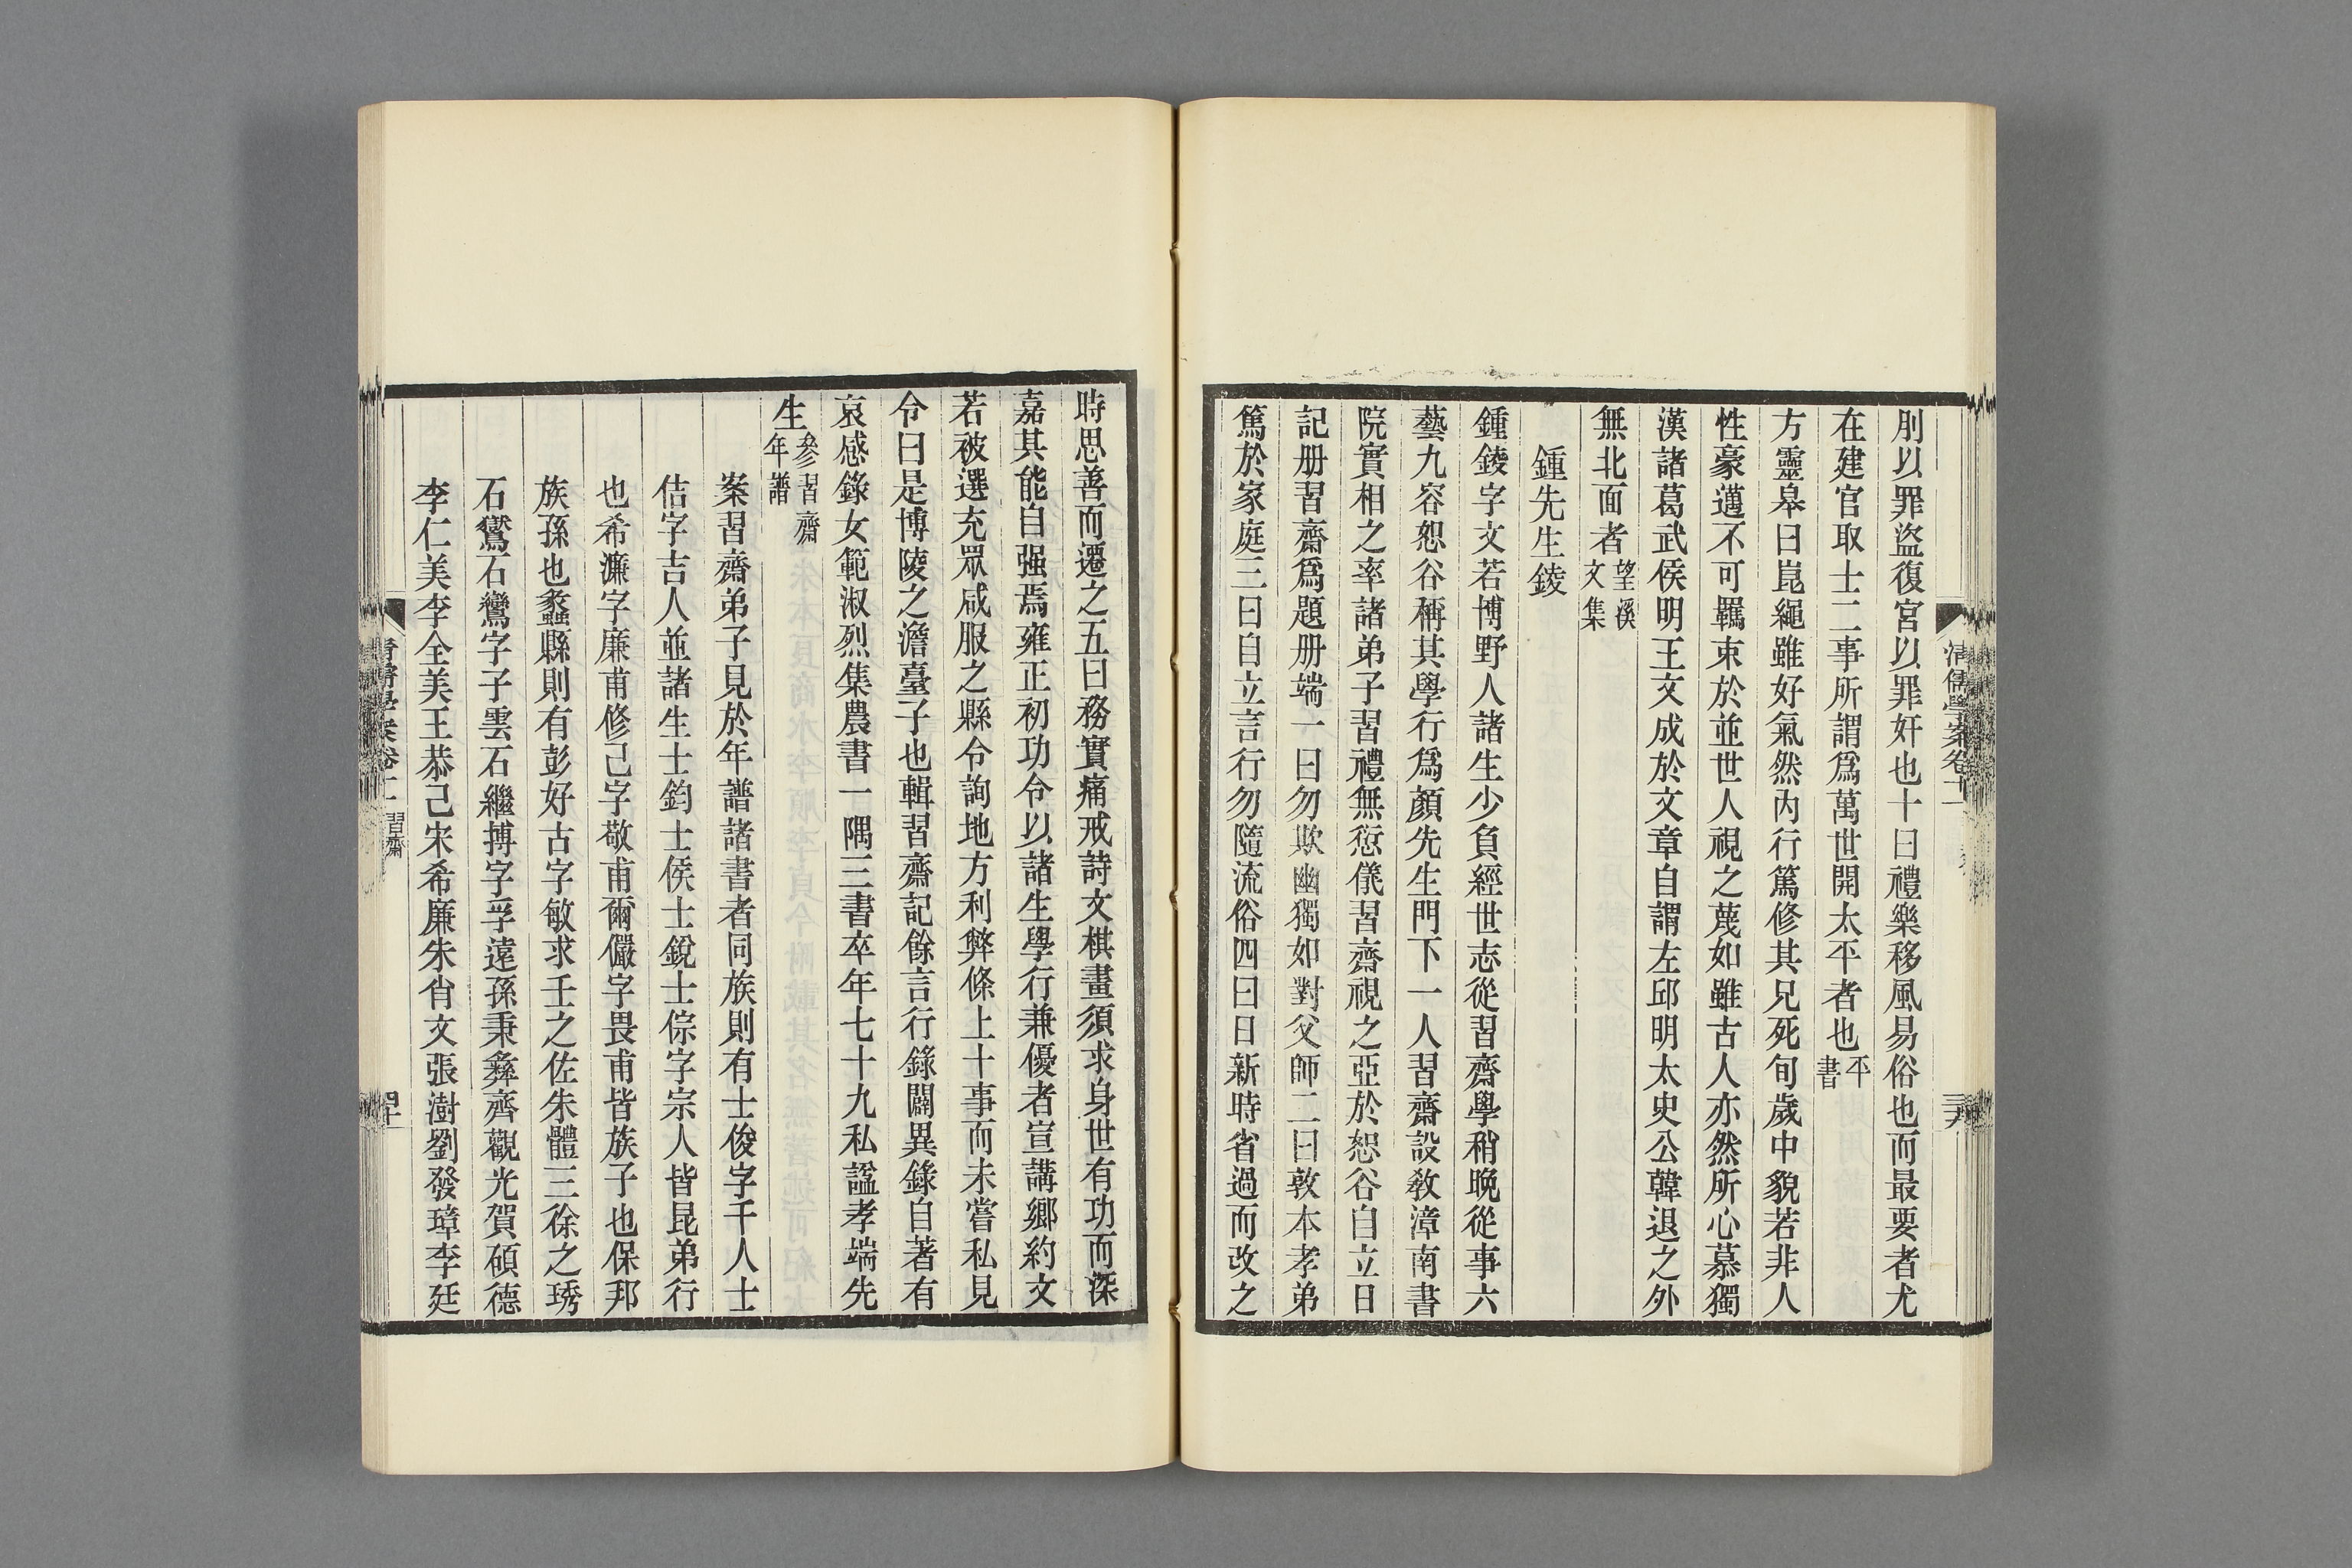 清儒學案卷十一
三九
刖以罪盜復宮以罪奸也十曰禮樂移風易俗也而最要者尤
在建官取士二事所謂爲萬世開太平者也平書
方靈皋曰崑繩雖好氣然內行篤修其兄死旬歲中貌若非人
性豪邁不可羈束於並世人視之蔑如雖古人亦然所心慕獨
漢諸葛武侯明王文成於文章自謂左邱明太史公韓退之外
無北面者望溪文集
鍾先生錂
鍾錂字文若博野人諸生少負經世志從習齋學稍晚從事六
藝九容恕谷稱其學行爲顏先生門下一人習齋設敎漳南書
院實相之率諸弟子習禮無愆儀習齋視之亞於恕谷自立日
記册習齋爲題册端一曰勿欺幽獨如對父師二曰敦本孝弟
篤於家庭三曰自立言行勿隨流俗四曰日新時省過而改之
時思善而遷之五曰務實痛戒詩文棋畫須求身世有功而深
嘉其能自强焉雍正初功令以諸生學行兼優者宣講鄉約文
若被選充眾咸服之縣令詢地方利弊條上十事而未嘗私見
令曰是博陵之澹臺子也輯習齋記餘言行錄闢異錄自著有
哀感錄女範淑烈集農書一隅三書卒年七十九私諡孝端先
生參習齋年譜
案習齋弟子見於年譜諸書者同族則有士俊字千人士
佶字吉人並諸生士鈞士侯士銳士倧字宗人皆昆弟行
也希濂字廉甫修己字敬甫爾儼字畏甫皆族子也保邦
族孫也蠡縣則有彭好古字敏求王之佐朱體三徐之琇
石鸑石鸞字子雲石繼搏字孚遠孫秉彝齊觀光賀碩德
李仁美李全美王恭己宋希廉朱肯文張澍劉發璋李廷
清儒學案卷十一 習齋
四十